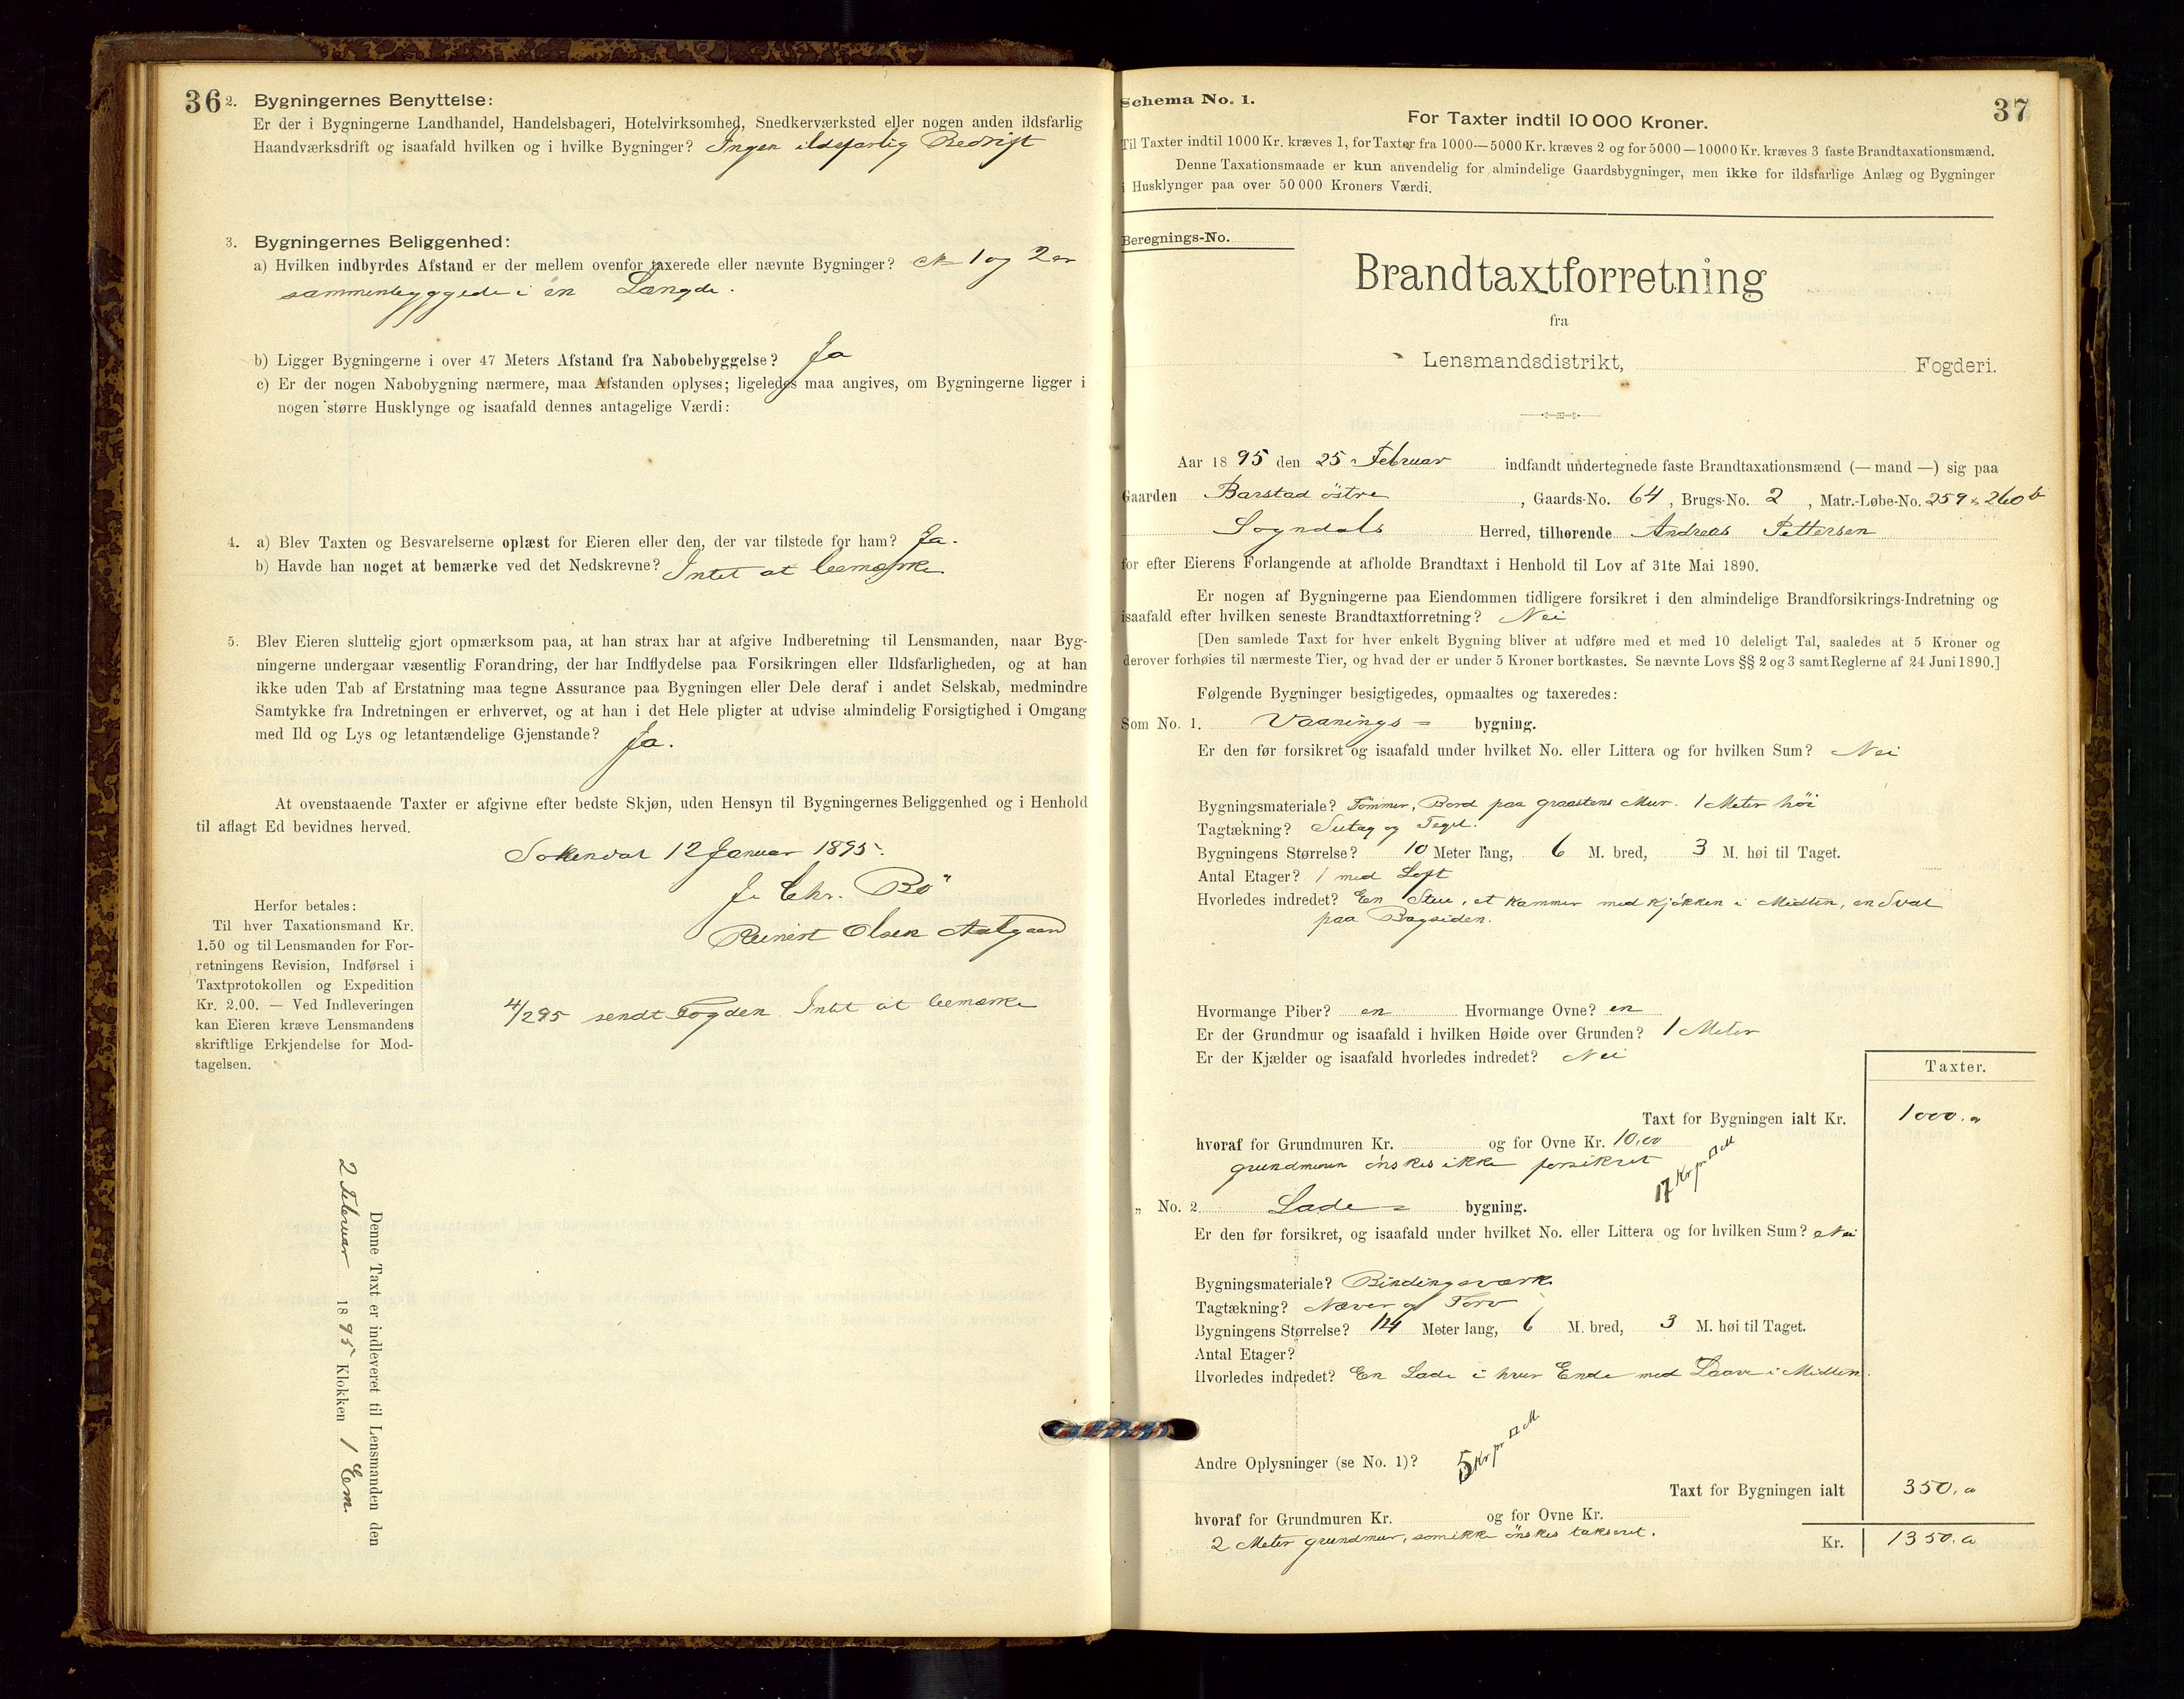 36
2. Bygningernes Benyttelse:
Er der i Bygningerne Landhandel, Handelsbageri, Hotelvirksomhed, Snedkerværksted eller nogen anden ildsfarlig
Haandværksdrift og isaafald hvilken og i hvilke Bygninger? Ingen ildsfarlig Bedrift
3. Bygningernes Beliggenhed:
a) Hvilken indbyrdes Afstand er der mellem ovenfor taxerede eller nævnte Bygninger? No 1 og 2 er
sammenbyggede i en Længde.
b) Ligger Bygningerne i over 47 Meters Afstand fra Nabobebyggelse? Ja
c) Er der nogen Nabobygning nærmere, maa Afstanden oplyses; ligeledes maa angives, om Bygningerne ligger i
nogen større Husklynge og isaafald dennes antagelige Værdi:
4. a) Blev Taxten og Besvarelserne oplæst for Eieren eller den, der var tilstede for ham? Ja.
b) Havde han noget at bemærke ved det Nedskrevne? Intet at bemærke
5. Blev Eieren sluttelig gjort opmærksom paa, at han strax har at afgive Indberetning til Lensmanden, naar Byg-
ningerne undergaar væsentlig Forandring, der har Indflydelse paa Forsikringen eller Ildsfarligheden, og at han
ikke uden Tab af Erstatning maa tegne Assurance paa Bygningen eller Dele deraf i andet Selskab, medmindre
Samtykke fra Indretningen er erhvervet, og at han i det Hele pligter at udvise almindelig Forsigtighed i Omgang
med Ild og Lys og letantændelige Gjenstande? Ja.
At ovenstaaende Taxter er afgivne efter bedste Skjøn, uden Hensyn til Bygningernes Beliggenhed og i Henhold
til aflagt Ed bevidnes herved.
Sokendal 12 Januar 1895.
J. Chr. Bö
Reinert Olsen Aalgaard
4/2 95 sendt Fogden. Intet at bemærke
Herfor betales:
Til hver Taxationsmand Kr.
1.50 og til Lensmanden for For-
retningens Revision, Indførsel i
Taxtprotokollen og Expedition
Kr. 2.00. — Ved Indleveringen
kan Eieren kræve Lensmandens
skriftlige Erkjendelse for Mod-
tagelsen.
Denne Taxt er indleveret til Lensmanden den
2 Februar 1895 Klokken 1 Em.
37
Schema No. 1.
For Taxter indtil 10 000 Kroner.
Til Taxter indtil 1000 Kr. kræves 1, for Taxter fra 1000—5000 Kr. kræves 2 og for 5000—10000 Kr. kræves 3 faste Brandtaxationsmænd.
Denne Taxationsmaade er kun anvendelig for almindelige Gaardsbygninger, men ikke for ildsfarlige Anlæg og Bygninger
i Husklynger paa over 50 000 Kroners Værdi.
Beregnings-No.
Brandtaxtforretning
fra
Lensmandsdistrikt, Fogderi.
Aar 1895 den 25 Februar indfandt undertegnede faste Brandtaxationsmænd (— mand —) sig paa
Gaarden Barstad östre, Gaards-No. 64, Brugs-No. 2, Matr.-Løbe-No. 259 & 260 b
Sogndals Herred, tilhørende Andreas Pettersen
for efter Eierens Forlangende at afholde Brandtaxt i Henhold til Lov af 31te Mai 1890.
Er nogen af Bygningerne paa Eiendommen tidligere forsikret i den almindelige Brandforsikrings-Indretning og
isaafald efter hvilken seneste Brandtaxtforretning? Nei
[Den samlede Taxt for hver enkelt Bygning bliver at udføre med et med 10 deleligt Tal, saaledes at 5 Kroner og
derover forhøies til nærmeste Tier, og hvad der er under 5 Kroner bortkastes. Se nævnte Lovs §§ 2 og 3 samt Reglerne af 24 Juni 1890.]
Følgende Bygninger besigtigedes, opmaaltes og taxeredes:
Som No. 1. Vaanings = bygning.
Er den før forsikret og isaafald under hvilket No. eller Littera og for hvilken Sum? Nei
Bygningsmateriale? Tømmer, Bord paa graastens Mur. 1 Meter høi
Tagtækning? Sutag og Tegel.
Bygningens Størrelse? 10 Meter lang, 6 M. bred, 3 M. høi til Taget.
Antal Etager? 1 med Loft
Hvorledes indredet? En Stue, et Kammer med Kjökken i Midten, en Sval
paa Bagsiden.
Hvormange Piber? en Hvormange Ovne? en
Er der Grundmur og isaafald i hvilken Høide over Grunden? 1 Meter
Er der Kjælder og isaafald hvorledes indredet? Nei
Taxter.
Taxt for Bygningen ialt Kr. 1000.00
hvoraf for Grundmuren Kr. og for Ovne Kr. 10.00
grundmuren önskes ikke forsikret
17 Kr pr □ M
„ No. 2. Lade = bygning.
Er den før forsikret, og isaafald under hvilket No. eller Littera og for hvilken Sum? Nei
Bygningsmateriale? Bindingsværk
Tagtækning? Næver og Torv
Bygningens Størrelse? 14 Meter lang, 6 M. bred, 3 M. høi til Taget.
Antal Etager?
Hvorledes indredet? En Lade i hver Ende med Laave i Midten.
5 Kr pr □ M.
Andre Oplysninger (se No. 1)?
Taxt for Bygningen ialt 350.00
hvoraf for Grundmuren Kr. og for Ovne Kr.
2 Meter grundmur, som ikke önskes takseret.
Kr. 1350.00